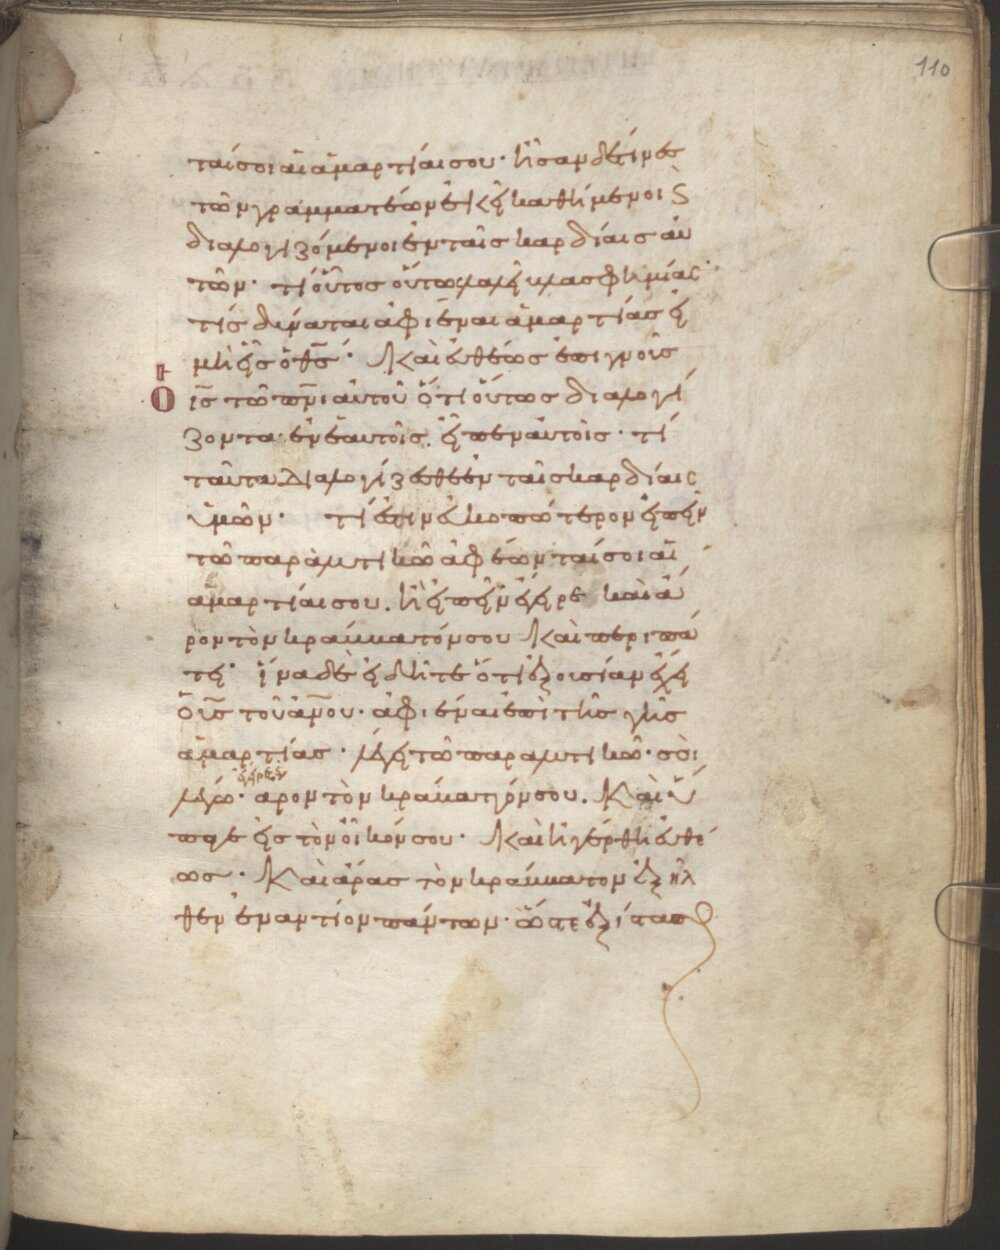 110
ταί σοι αἱ ἁμαρτίαι σου· ἦσαν δέ τινες
τῶν γραμματέων ἐκεῖ καθήμενοι ϗ
διαλογιζόμενοι ἐν ταῖς καρδίαις αὐ
τῶν· τί οὗτος οὕτως λαλεῖ βλασφημίας·
τίς δύναται ἀφιέναι ἁμαρτίας εἰ
μὴ εἷς ὁ θς̅· Καὶ εὐθέως ἐπιγνοὺς
ὁ ις̅ τῶ πνι̅ αὐτοῦ ὅτι οὕτως διαλογί
ζονται ἐν ἑαυτοῖς. εἶπεν αὐτοῖς· τί
ταῦτα διαλογίζεσθε ἐν ταῖς καρδίαις
ὑμῶν· τί ἐστιν εὐκοπώτερον εἰπεῖν
τῶ παραλυτικῶ ἀφέωνταί σοι αἱ
ἁμαρτίαι σου. ἢ εἰπεῖν ἔγειρε καὶ ἆ
ρον τὸν κράββατόν σου καὶ περιπά
τει· ἵνα δὲ εἰδῆτε ὅτι ἐξουσίαν ἔχει
ὁ υς̅ τοῦ ανου̅· ἀφιέναι ἐπὶ τῆς γῆς
ἁμαρτίας· λέγει τῶ παραλυτικῶ· σοὶ
ἔγειρε
λέγω· ἆρον τὸν κράβατόν σου. Καὶ ὕ
παγε εἰς τὸν οἶκόν σου· Καὶ ἠγέρθη εὐθέ
ως· Καὶ ἄρας τὸν κράββατον ἐξῆλ
θεν ἐναντίον πάντων· ὥστε ἐξίστασ